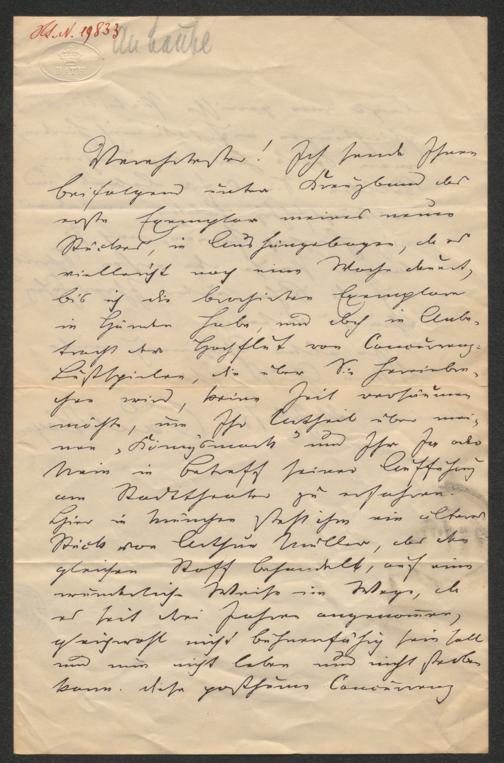 Hs. N. 19833
An Laube
BATH
Verehrtester! Ich sende Ihnen
beifolgend unter Kreuzband das
erste Exemplar meines neuen
Stückes, in Aushängebogen, da es
vielleicht noch eine Woche dauert,
bis ich die brochirten Exemplare
in Händen habe, und doch in Anbe-
tracht der Hochflut von Concurrenz-
Lustspielen, die über Sie hereinbre-
chen wird, keine Zeit versäumen
möchte, um Ihr Urtheil über mei-
nen „Königsmark" und Ihr Ja oder
Nein in betreff seiner Aufführung
am Stadttheater zu erfahren.
Hier in München steht ihm ein älteres
Stück von Arthur Müller, das den
gleichen Stoff behandelt, auf eine
wunderliche Weise im Wege, da
es seit drei Jahren angenommen,
gleichwohl nicht bühnenfähig sein soll
und nun nicht leben und nicht sterben
kann. diese posthume Concurrenz